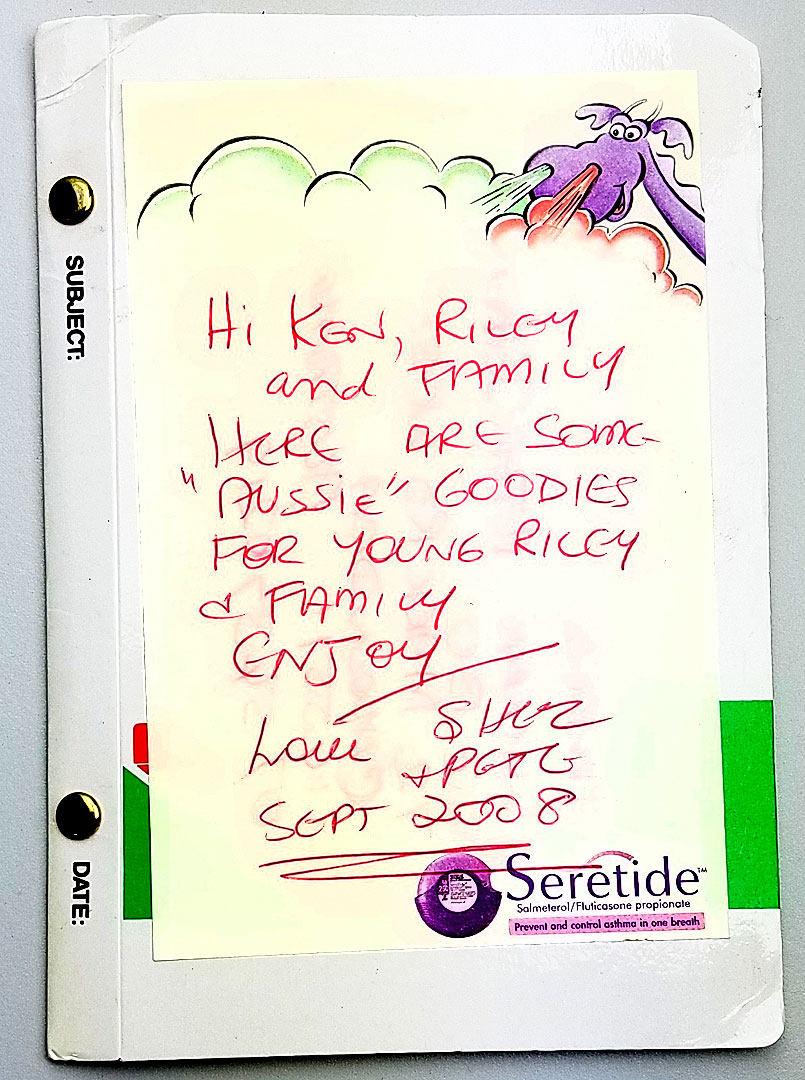 SUBJECT:
DATE:
Hi KEN, RILEY
and FAMILY
HERE ARE SOME
"AUSSIE" GOODIES
FOR YOUNG RILEY
& FAMILY
ENJOY
Love SHEZ
+ PETE
SEPT 2008
Seretide™
Salmeterol/Fluticasone propionate
Prevent and control asthma in one breath